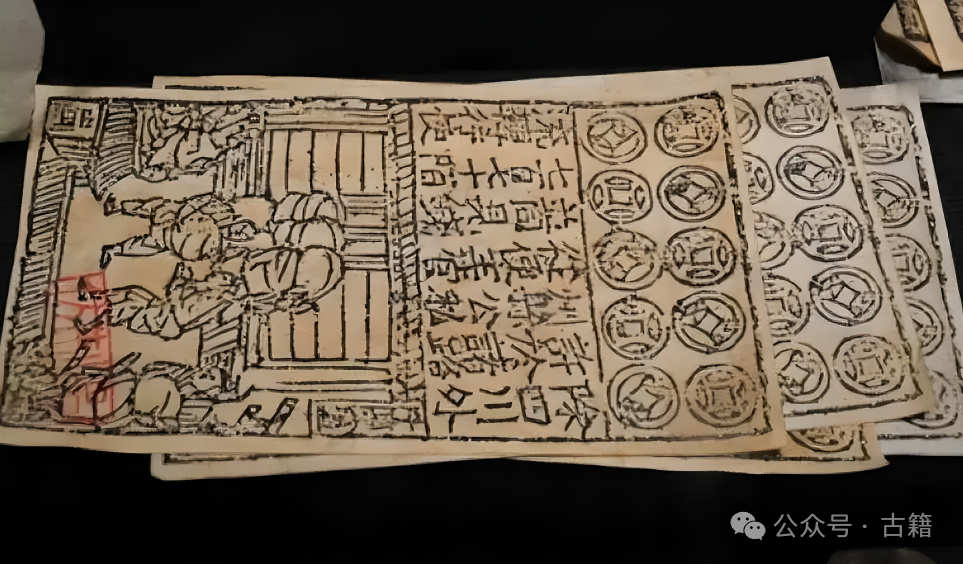 除四川外
許於諸路
州縣公私
從便主管
並同見錢
七百七十陌
流轉行使
公众号 · 古籍